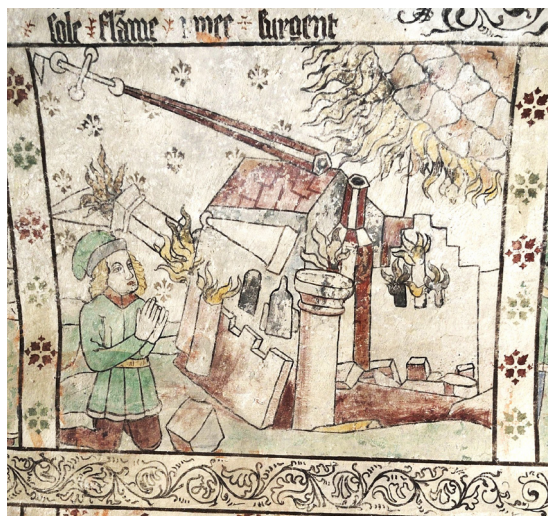 sole flāme surgent